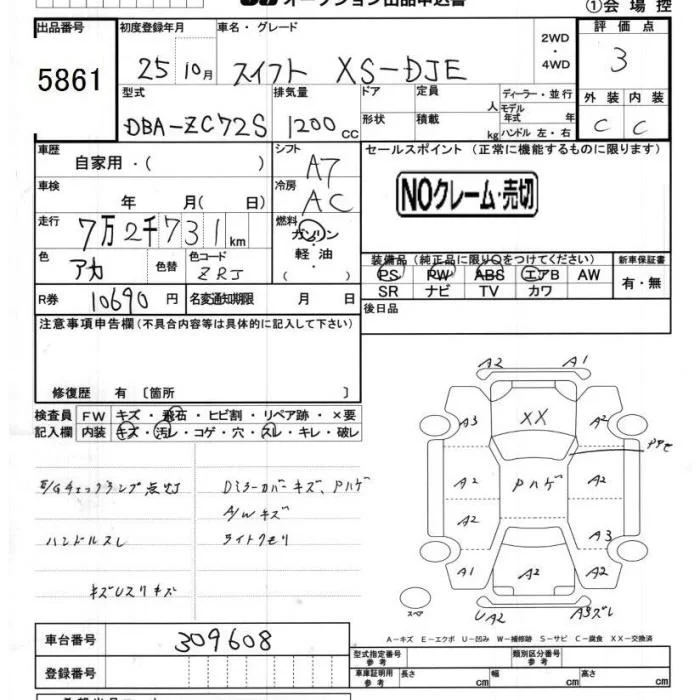 オークション出品申込書
①会場控
出品番号
初度登録年月
車名・グレード
2WD
・
4WD
評価点
5861
25 10月
スイフト XS-DJE
3
型式
排気量
ドア
定員
人
ディーラー・並行
外装
内装
DBA-ZC72S
1200 cc
形状
積載
kg
モデル
年式 年
ハンドル 左・右
C
C
車歴
自家用・( )
シフト
A7
セールスポイント (正常に機能するものに限ります)
車検
年 月( 日)
冷房
AC
NOクレーム・売切
走行
7万2千731km
燃料
ガソリン
・
軽油
( ・ )
色
アカ
色替
色コード
ZRJ
装備品(純正品に限り○をつけてください)
新車保証書
PS PW ABS エアB AW
有・無
R券
10690円
名変通知期限
月 日
SR ナビ TV カワ
後日品
注意事項申告欄(不具合内容等は具体的に記入して下さい)
修復歴 有 〔箇所 〕
検査員
記入欄
FW
キズ・飛石・ヒビ割・リペア跡・×要
内装
キズ・汚レ・コゲ・穴・スレ・キレ・破レ
E/Gチェックランプ点灯
Dミラーカバーキズ、Pハゲ
A/Wキズ
ハンドルスレ
ライトクモリ
A2
A1
A3
XX
A2
A2
Pハゲ
A2
A2
A3
A1
A2
A2
UA2
A3ズレ
スペア
A-キズ E-エクボ U-凹み W-補修跡 S-サビ C-腐食 XX-交換済
車台番号
309608
登録番号
型式指定番号
参考
類別区分番号
参考
車庫証明用
参考
長さ
cm
幅
cm
高さ
cm